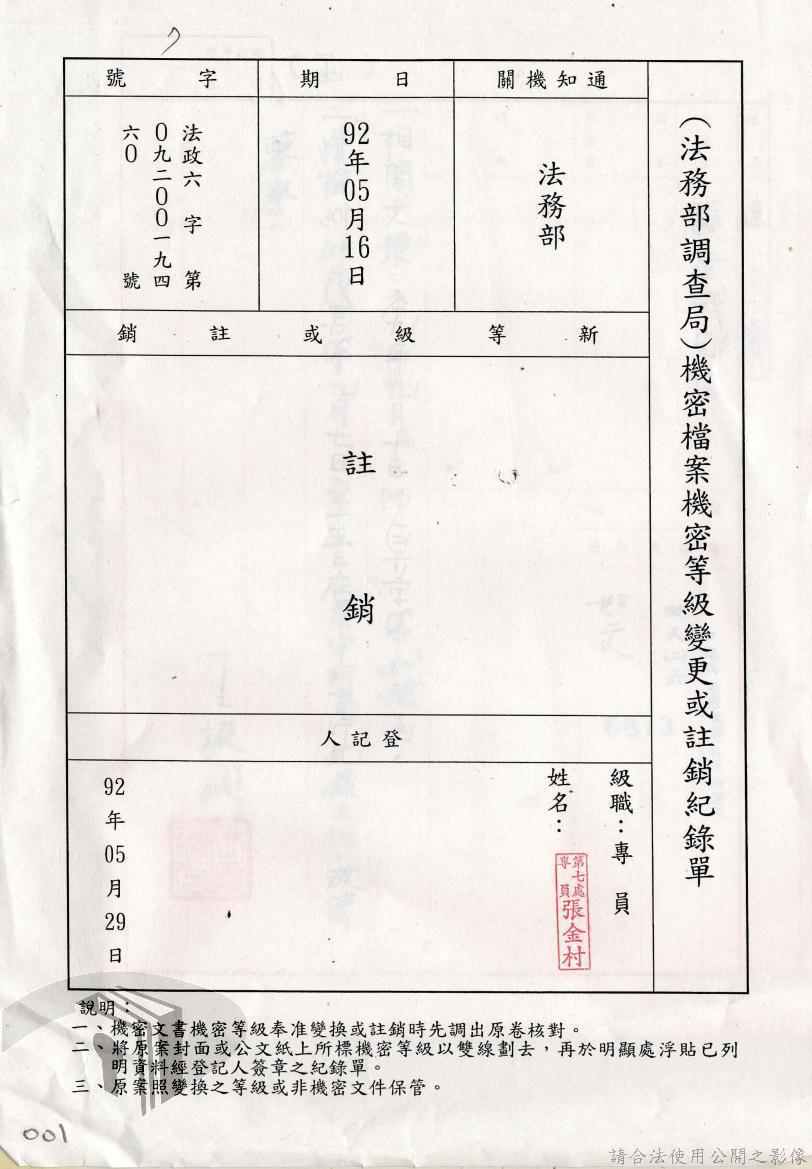 (法務部調查局)機密檔案機密等級變更或註銷紀錄單
通知機關
法務部
日期
92年05月16日
字號
法政六字第
0九二00一九四
六0號
新等級或註銷
註銷
登記人
級職：專員
姓名：
第七處
專員
張金村
92年05月29日
說明：
一、機密文書機密等級奉准變換或註銷時先調出原卷核對。
二、將原案封面或公文紙上所標機密等級以雙線劃去，再於明顯處浮貼已列
明資料經登記人簽章之紀錄單。
三、原案照變換之等級或非機密文件保管。
001
請合法使用公開之影像